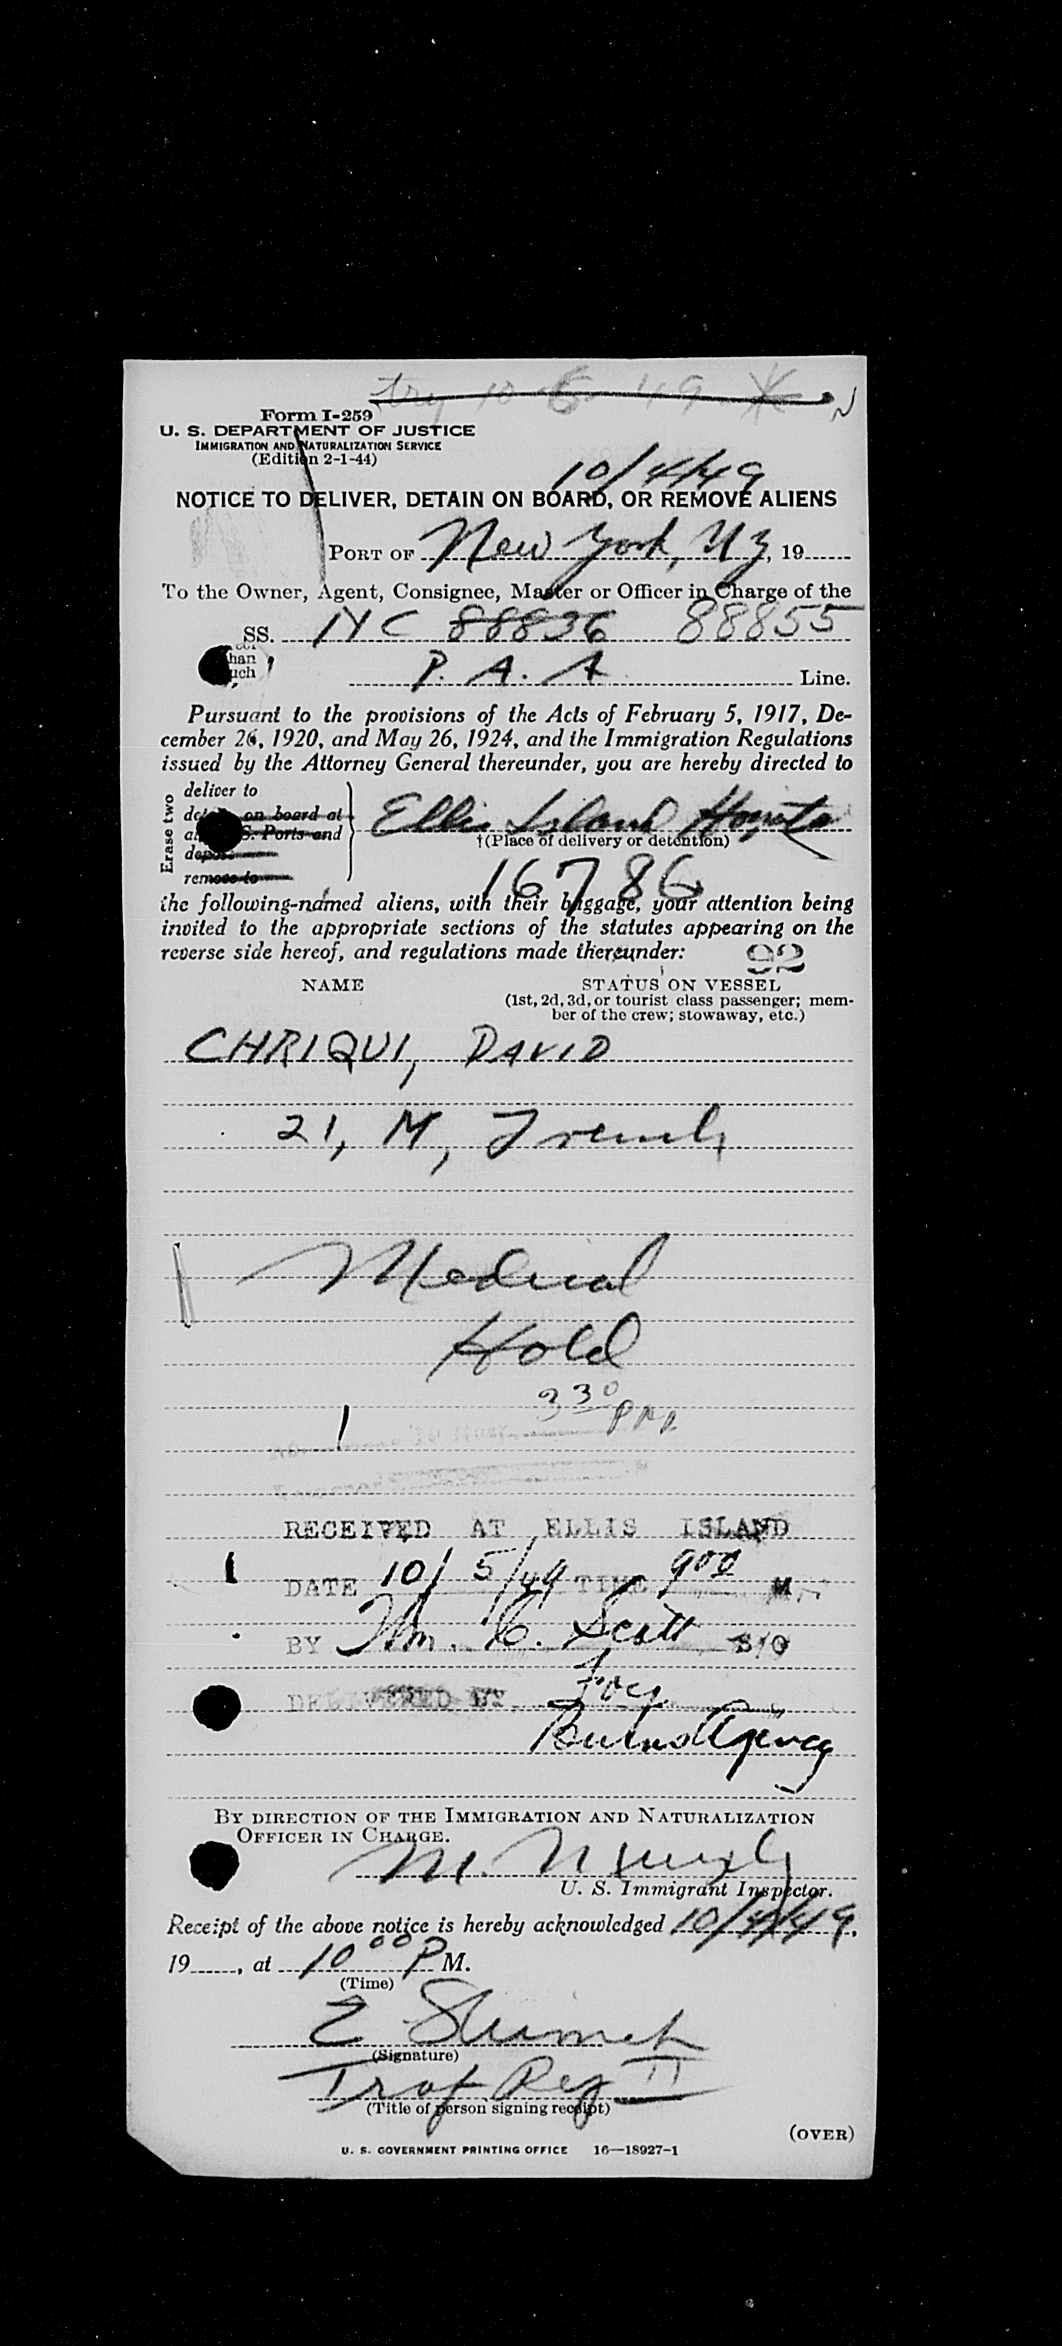 Form I-259
U. S. DEPARTMENT OF JUSTICE
IMMIGRATION AND NATURALIZATION SERVICE
(Edition 2-1-44)
10/4/49
NOTICE TO DELIVER, DETAIN ON BOARD, OR REMOVE ALIENS
PORT OF New York, NY, 19
To the Owner, Agent, Consignee, Master or Officer in Charge of the
SS. NC 88836 88855
P. A. A Line.
Pursuant to the provisions of the Acts of February 5, 1917, De-
cember 26, 1920, and May 26, 1924, and the Immigration Regulations
issued by the Attorney General thereunder, you are hereby directed to
Erase two
deliver to
on board at
S. Ports and
remove to
Ellis Island
†(Place of delivery or detention)
16786
the following-named aliens, with their baggage, your attention being
invited to the appropriate sections of the statutes appearing on the
reverse side hereof, and regulations made thereunder:
92
NAME STATUS ON VESSEL
(1st, 2d, 3d, or tourist class passenger; mem-
ber of the crew; stowaway, etc.)
CHRIQUI, DAVID
21, M, French
Medical
Hold
3 30 PM
RECEIVED AT ELLIS ISLAND
DATE 10/5/49 TIME 900 M
BY Wm. C. Scott S/O
DELIVERED BY Foy
Burns Agency
BY DIRECTION OF THE IMMIGRATION AND NATURALIZATION
OFFICER IN CHARGE.
M.
U. S. Immigrant Inspector.
Receipt of the above notice is hereby acknowledged 10/4/49,
19, at 10 00 P M.
(Time)
E
(Signature)
Traf Rep II
(Title of person signing receipt)
(OVER)
U. S. GOVERNMENT PRINTING OFFICE 16—18927-1